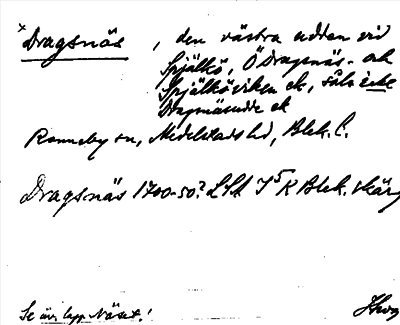 x Dragsnäs, den västra udden vid
Spjälkö, Ö Dragsnäs- och
Spjälköviken ek, såls icke
Dragsnäsudde ek
Ronneby sn, Medelstads hd, Blek. l.
Dragsnäs 1700-50? LSA I 5 K Blek. skärg
Se äv. lapp Näset!